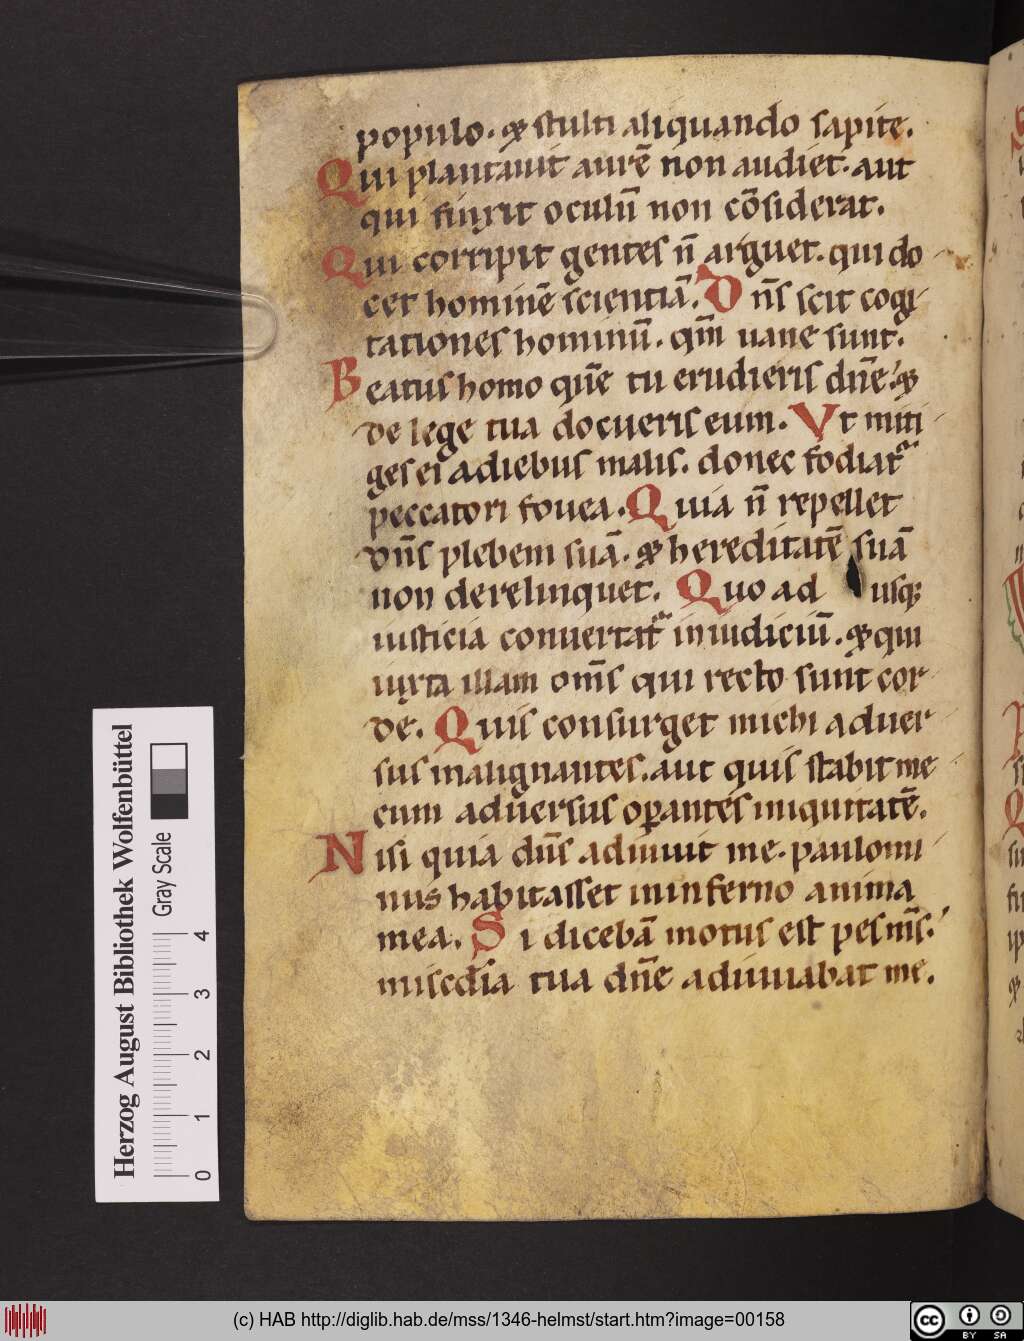 populo. et stulti aliquando sapite.
Qui plantauit aurē non audiet. aut
qui finxit oculū non cōsiderat.
Qui corripit gentes n̄ arguet. qui do
cet hominē scientiā. Dn̄s scit cogi
tationes hominū. qm̄ uane sunt.
Beatus homo quē tu erudieris dn̄e. et
de lege tua docueris eum. Vt miti
ges ei a diebus malis. donec fodiat᷑
peccatori fouea. Quia n̄ repellet
dn̄s plebem suā. et hereditatē suā
non derelinquet. Quo ad usq;
iusticia conuertat᷑ in iudiciū. et qui
iuxta illam om̄s qui recto sunt cor
de. Quis consurget michi aduer
sus malignantes. aut quis stabit me
cum aduersus oꝑantes iniquitatē.
Nisi quia dn̄s adiuuit me. paulomi
nus habitasset in inferno anima
mea. Si dicebā motus est pes ms̄.
misc̄dia tua dn̄e adiuuabat me.
Herzog August Bibliothek Wolfenbüttel
Gray Scale
0 1 2 3 4
(c) HAB http://diglib.hab.de/mss/1346-helmst/start.htm?image=00158
cc BY SA